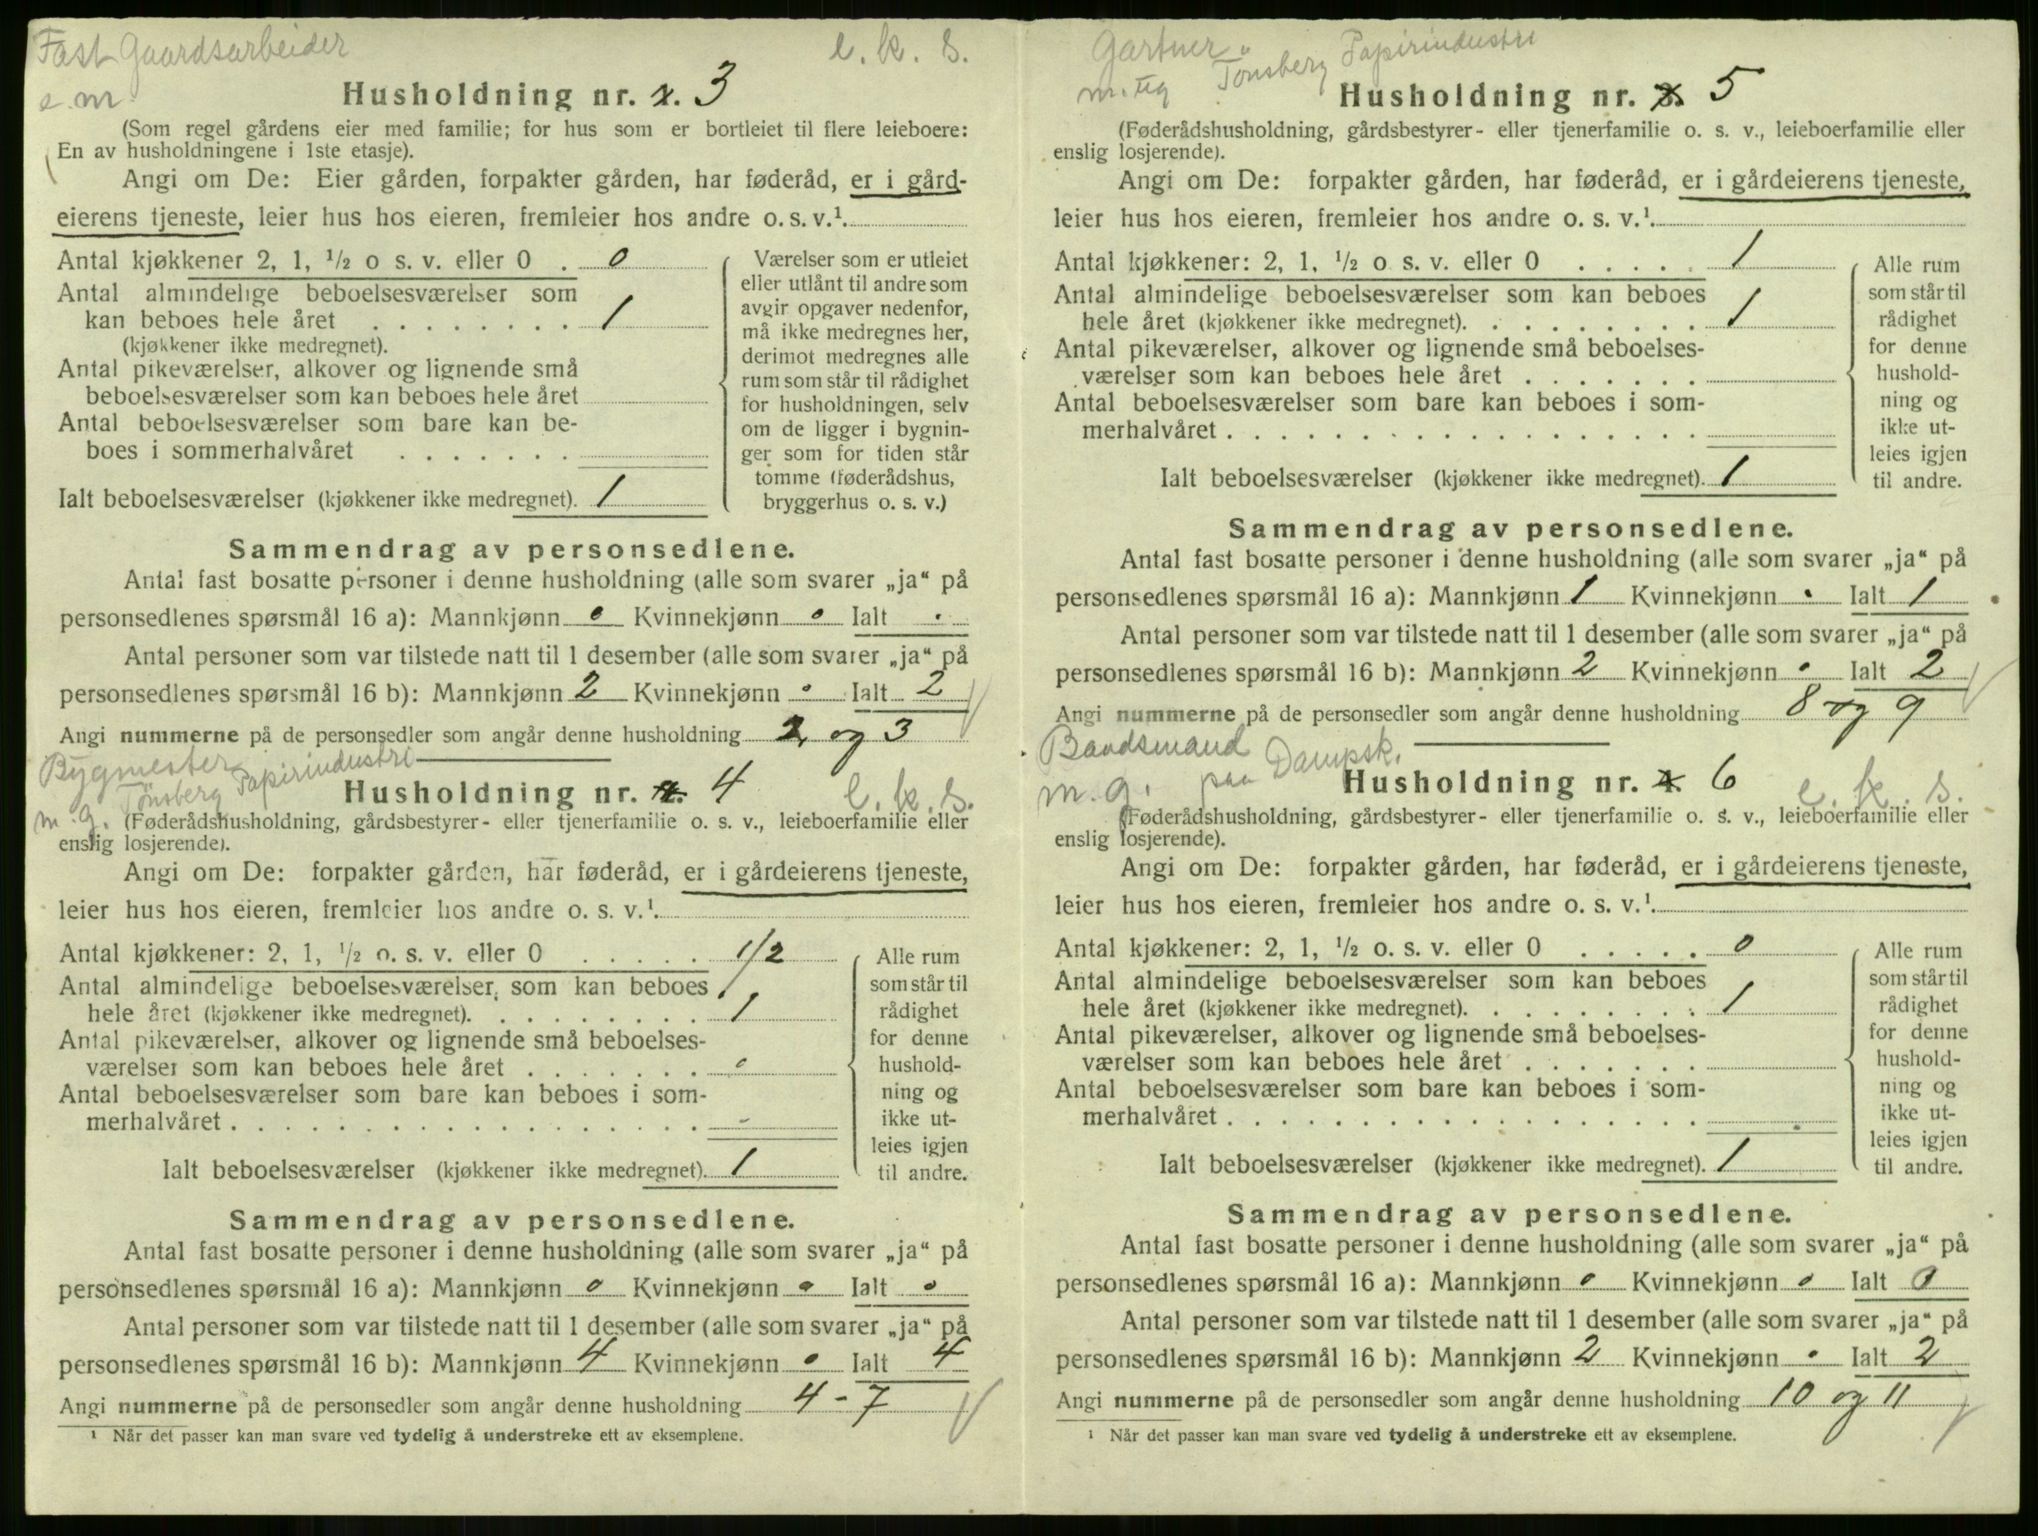 Fast Gaardsarbeider e. k. s.
e. m.
Husholdning nr. 1. 3
(Som regel gårdens eier med familie; for hus som er bortleiet til flere leieboere:
En av husholdningene i 1ste etasje).
Angi om De: Eier gården, forpakter gården, har føderåd, er i gård-
eierens tjeneste, leier hus hos eieren, fremleier hos andre o. s. v.¹.
Antal kjøkkener 2, 1, ½ o s. v. eller 0 . 0
Antal almindelige beboelsesværelser som
kan beboes hele året . . . . . . . . 1
(kjøkkener ikke medregnet).
Antal pikeværelser, alkover og lignende små
beboelsesværelser som kan beboes hele året
Antal beboelsesværelser som bare kan be-
boes i sommerhalvåret . . . . . . .
Ialt beboelsesværelser (kjøkkener ikke medregnet). 1
Værelser som er utleiet
eller utlånt til andre som
avgir opgaver nedenfor,
må ikke medregnes her,
derimot medregnes alle
rum som står til rådighet
for husholdningen, selv
om de ligger i bygnin-
ger som for tiden står
tomme (føderådshus,
bryggerhus o. s. v.)
Sammendrag av personsedlene.
Antal fast bosatte personer i denne husholdning (alle som svarer „ja“ på
personsedlenes spørsmål 16 a): Mannkjønn 0 Kvinnekjønn 0 Ialt .
Antal personer som var tilstede natt til 1 desember (alle som svarer „ja“ på
personsedlenes spørsmål 16 b): Mannkjønn 2 Kvinnekjønn 0 Ialt 2
Angi nummerne på de personsedler som angår denne husholdning 2 og 3
Bygmester
Tönsberg Papirindustri
m. g.
Husholdning nr. 2. 4 e. k. s.
(Føderådshusholdning, gårdsbestyrer- eller tjenerfamilie o. s. v., leieboerfamilie eller
enslig losjerende).
Angi om De: forpakter gården, har føderåd, er i gårdeierens tjeneste,
leier hus hos eieren, fremleier hos andre o. s. v.¹.
Antal kjøkkener: 2, 1, ½ o. s. v. eller 0 . . . . . 1/2
Antal almindelige beboelsesværelser som kan beboes
hele året (kjøkkener ikke medregnet). . . . . . . . . 1
Antal pikeværelser, alkover og lignende små beboelses-
værelser som kan beboes hele året . . . . . . . 0
Antal beboelsesværelser som bare kan beboes i som-
merhalvåret . . . . . . . . . . . . . . . . . . -
Ialt beboelsesværelser (kjøkkener ikke medregnet). 1
Alle rum
som står til
rådighet
for denne
hushold-
ning og
ikke ut-
leies igjen
til andre.
Sammendrag av personsedlene.
Antal fast bosatte personer i denne husholdning (alle som svarer „ja“ på
personsedlenes spørsmål 16 a): Mannkjønn 0 Kvinnekjønn 0 Ialt 0
Antal personer som var tilstede natt til 1 desember (alle som svarer „ja“ på
personsedlenes spørsmål 16 b): Mannkjønn 4 Kvinnekjønn 0 Ialt 4
Angi nummerne på de personsedler som angår denne husholdning 4 - 7
¹ Når det passer kan man svare ved tydelig å understreke ett av eksemplene.
Gartner Tönsberg Papirindustri
m. ug
Husholdning nr. 3. 5
(Føderådshusholdning, gårdsbestyrer- eller tjenerfamilie o. s. v., leieboerfamilie eller
enslig losjerende).
Angi om De: forpakter gården, har føderåd, er i gårdeierens tjeneste,
leier hus hos eieren, fremleier hos andre o. s. v.¹.
Antal kjøkkener: 2, 1, ½ o s. v. eller 0 . . . . . 1
Antal almindelige beboelsesværelser som kan beboes
hele året (kjøkkener ikke medregnet). . . . . . . . . 1
Antal pikeværelser, alkover og lignende små beboelses-
værelser som kan beboes hele året . . . . . . .
Antal beboelsesværelser som bare kan beboes i som-
merhalvåret . . . . . . . . . . . . . . . . . .
Ialt beboelsesværelser (kjøkkener ikke medregnet). 1
Alle rum
som står til
rådighet
for denne
hushold-
ning og
ikke ut-
leies igjen
til andre.
Sammendrag av personsedlene.
Antal fast bosatte personer i denne husholdning (alle som svarer „ja“ på
personsedlenes spørsmål 16 a): Mannkjønn 1 Kvinnekjønn . Ialt 1
Antal personer som var tilstede natt til 1 desember (alle som svarer „ja“ på
personsedlenes spørsmål 16 b): Mannkjønn 2 Kvinnekjønn 0 Ialt 2
Angi nummerne på de personsedler som angår denne husholdning 8 og 9
Baadsmand
m. g. paa Dampsk.
Husholdning nr. 4. 6 e. k. s.
(Føderådshusholdning, gårdsbestyrer- eller tjenerfamilie o. s. v., leieboerfamilie eller
enslig losjerende).
Angi om De: forpakter gården, har føderåd, er i gårdeierens tjeneste,
leier hus hos eieren, fremleier hos andre o. s. v.¹.
Antal kjøkkener: 2, 1, ½ o. s. v. eller 0 . . . . . 0
Antal almindelige beboelsesværelser som kan beboes
hele året (kjøkkener ikke medregnet). . . . . . . . . 1
Antal pikeværelser, alkover og lignende små beboelses-
værelser som kan beboes hele året . . . . . . .
Antal beboelsesværelser som bare kan beboes i som-
merhalvåret . . . . . . . . . . . . . . . . . .
Ialt beboelsesværelser (kjøkkener ikke medregnet). 1
Alle rum
som står til
rådighet
for denne
hushold-
ning og
ikke ut-
leies igjen
til andre.
Sammendrag av personsedlene.
Antal fast bosatte personer i denne husholdning (alle som svarer „ja“ på
personsedlenes spørsmål 16 a): Mannkjønn 0 Kvinnekjønn 0 Ialt 0
Antal personer som var tilstede natt til 1 desember (alle som svarer „ja“ på
personsedlenes spørsmål 16 b): Mannkjønn 2 Kvinnekjønn . Ialt 2
Angi nummerne på de personsedler som angår denne husholdning 10 og 11
¹ Når det passer kan man svare ved tydelig å understreke ett av eksemplene.